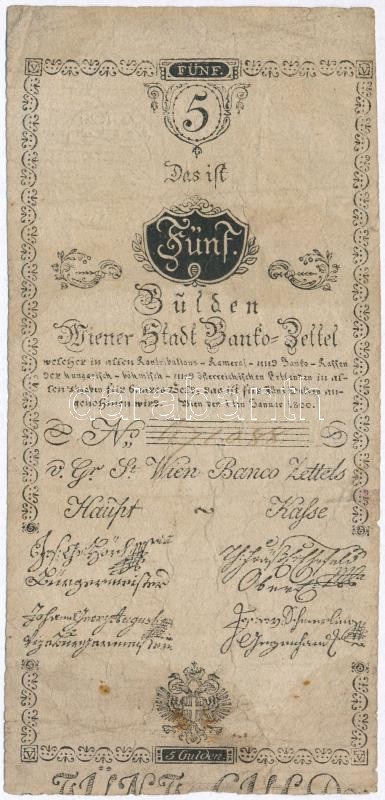 FÜNF.
5
Das ist
Fünf.
Gulden
Wiener Stadt Banko-Zettel
welcher in allen Kontributions-Kameral- und Banko-Kassen
der hungarisch-böhmisch- und österreichischen Erblanden in al-
len Gaben für baares Geld, das ist für Fünf Gulden an-
genohmen wird. Wien den 1ten Januar 1800.
No.
v. Gr. St. Wien Banco Zettels
Haupt ~ Kasse
Bürgermeister
Johann Georg August
Vizebürgermeister
5 Gulden
FÜNF GULD